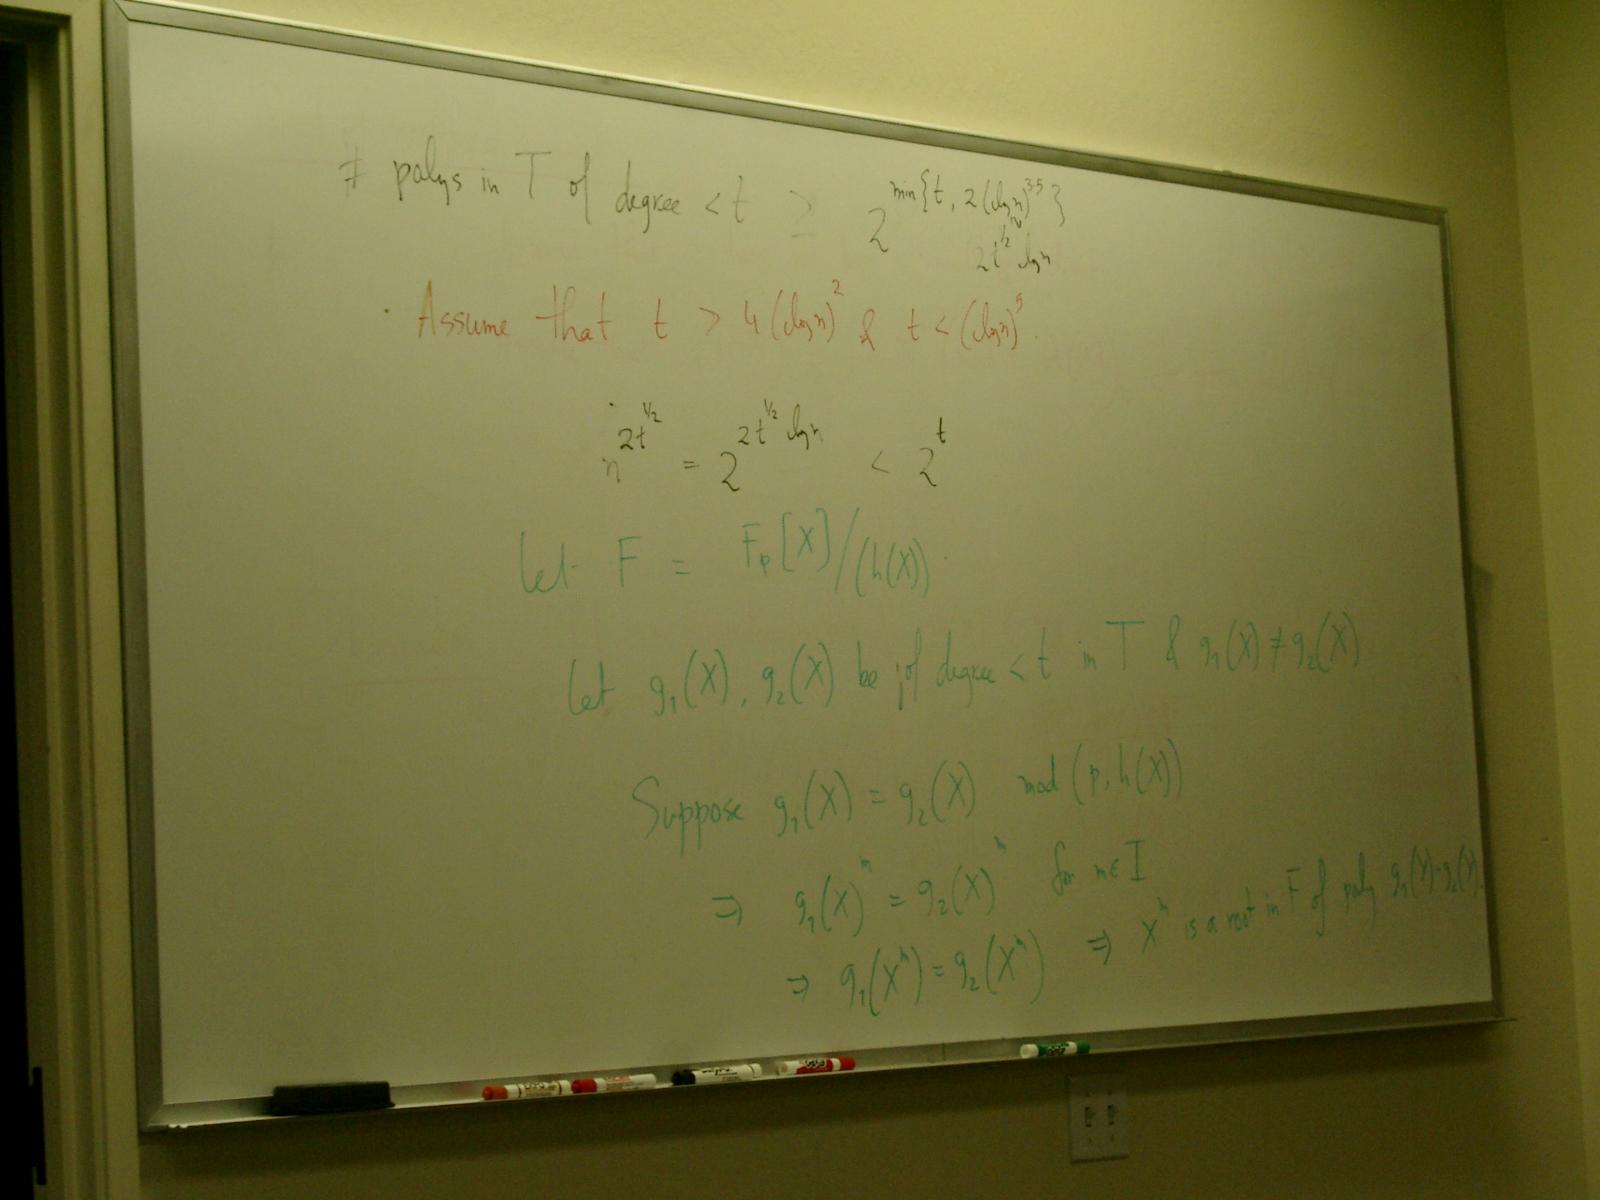 # polys in T of degree < t ≥ 2^{min{t, 2(log n)^{3.5}}}
2t^{1/2} log n
· Assume that t > 4(log n)^2 & t < (log n)^5.
n^{2t^{1/2}} = 2^{2t^{1/2} log n} < 2^t
Let F = F_p[X]/(h(X)).
Let g_1(X), g_2(X) be of degree < t in T & g_1(X) ≠ g_2(X)
Suppose g_1(X) = g_2(X) mod (p, h(X))
⇒ g_1(X)^m = g_2(X)^m for m ∈ I
⇒ g_1(X^m) = g_2(X^m) ⇒ X^m is a root in F of poly g_1(Y)-g_2(Y).